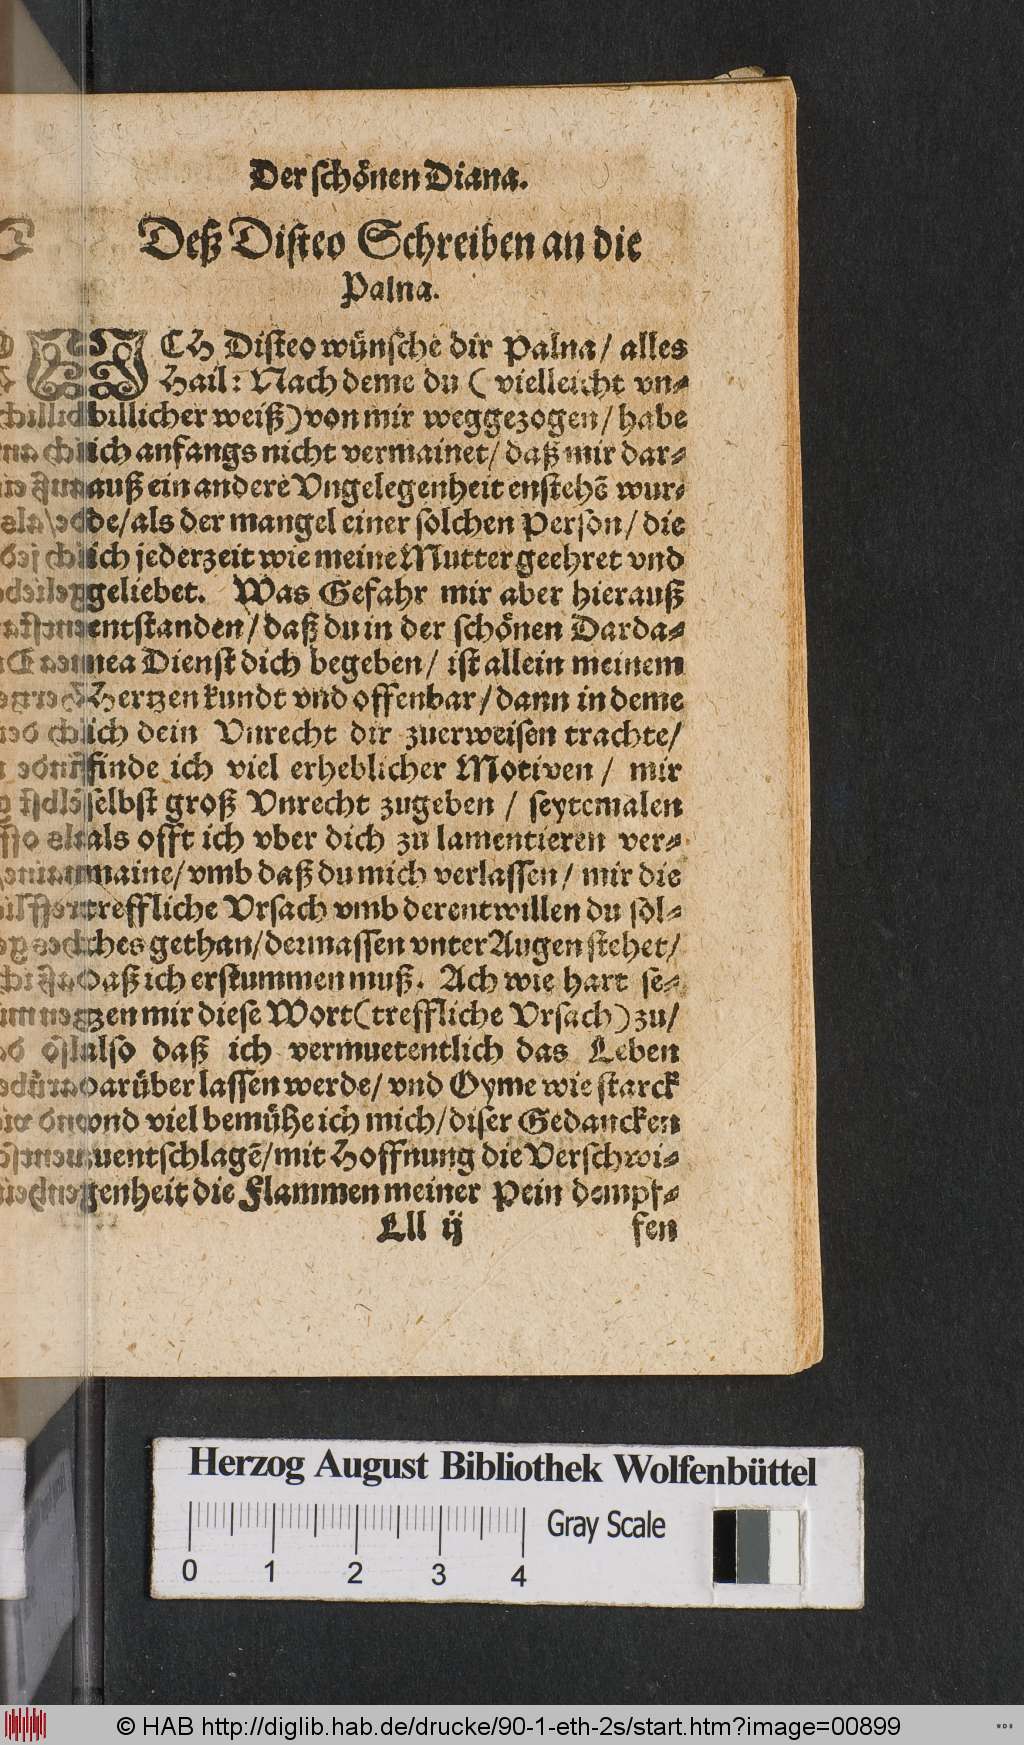 Der schönen Diana.
Deß Disteo Schreiben an die
Palna.
ICH Disteo wünsche dir Palna/ alles
Hail: Nach deme du (vielleicht vn-
billicher weiß) von mir weggezogen/ habe
ich anfangs nicht vermainet/ daß mir dar-
auß ein andere Vngelegenheit enstehē wur-
de/ als der mangel einer solchen Person/ die
ich jederzeit wie meine Mutter geehret vnd
geliebet. Was Gefahr mir aber hierauß
entstanden/ daß du in der schönen Darda-
nea Dienst dich begeben/ ist allein meinem
Hertzen kundt vnd offenbar/ dann in deme
ich dein Vnrecht dir zuerweisen trachte/
finde ich viel erheblicher Motiven/ mir
selbst groß Vnrecht zugeben/ seytemalen
als offt ich vber dich zu lamentieren ver-
maine/ vmb daß du mich verlassen/ mir die
treffliche Vrsach vmb derentwillen du sol-
ches gethan/ dermassen vnter Augen stehet/
daß ich erstummen muß. Ach wie hart se-
tzen mir diese Wort (treffliche Vrsach) zu/
also daß ich vermuetentlich das Leben
darüber lassen werde/ vnd Oyme wie starck
vnd viel bemühe ich mich/ diser Gedancken
zuentschlagē/ mit Hoffnung die Verschwi-
genheit die Flammen meiner Pein dempf-
Lll ij
fen
Herzog August Bibliothek Wolfenbüttel
Gray Scale
0 1 2 3 4
© HAB http://diglib.hab.de/drucke/90-1-eth-2s/start.htm?image=00899